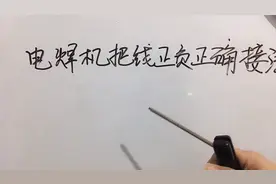 电焊机把线正负正确接法